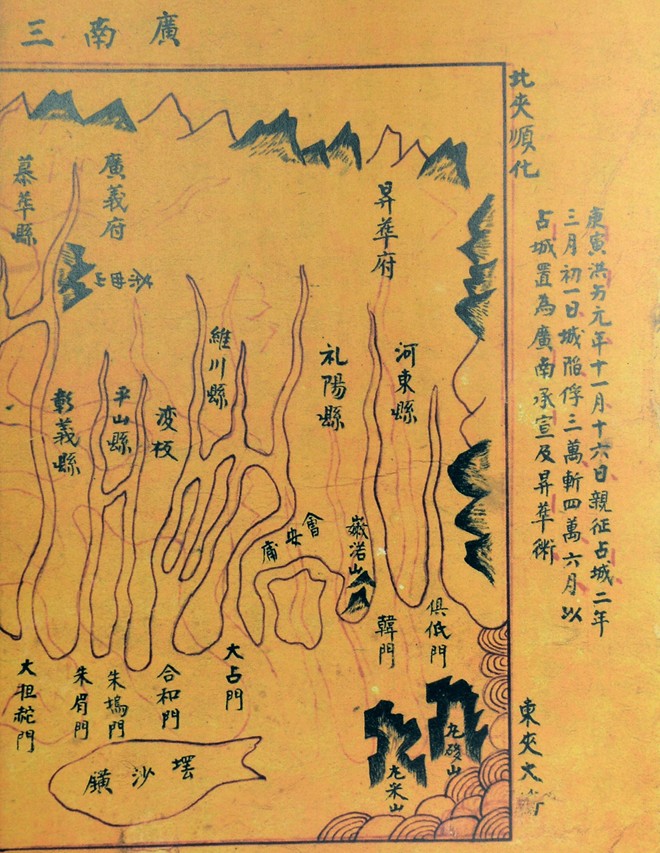 廣南三
北夾順化
庚寅洪为元年十一月十六日親征占城二年
三月初一日城陷俘三萬斬四萬六月以
占城置為廣南承宣及昇華衛
東夾大
昇華府
河東縣
礼陽縣
維川縣
廣義府
慕華縣
平山縣
彰義縣
波板
會安庯
山
俱低門
韓門
大占門
合和門
朱塢門
朱眉門
大担𫚭門
山
山
鐄沙𡑱